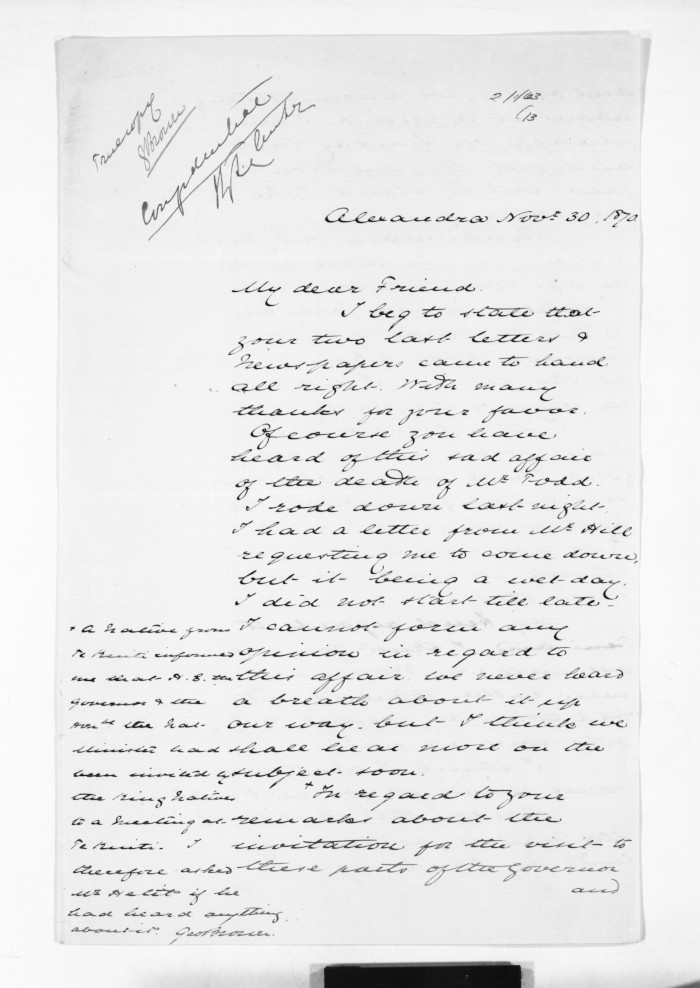 True copy
G Brown
Confidential
2/1/23
/13
Alexandra Novr. 30. 1870
My dear Friend.
I beg to state that
your two last letters &
Newspapers came to hand
all right. With many
thanks for your favor.
Of course you have
heard of this sad affair
of the death of Mr Todd.
I rode down last night.
I had a letter from Mr Hill
requesting me to come down,
but it being a wet day.
I did not start till late.
I cannot form any
opinion in regard to
this affair we never heard
a breath about it up
our way. but I think we
shall hear more on the
subject soon.
+ In regard to your
remarks about the
invitation for the visit to
these parts of the Governor
and
+ A Native from
Te Kuiti informed
me that H. E. the
Governor & the
Honble the Nat.
Minister had
been invited by
the King Natives
to a Meeting at
Te Kuiti. I
therefore asked
Mr if he
had heard anything
about it. Geo Brown.